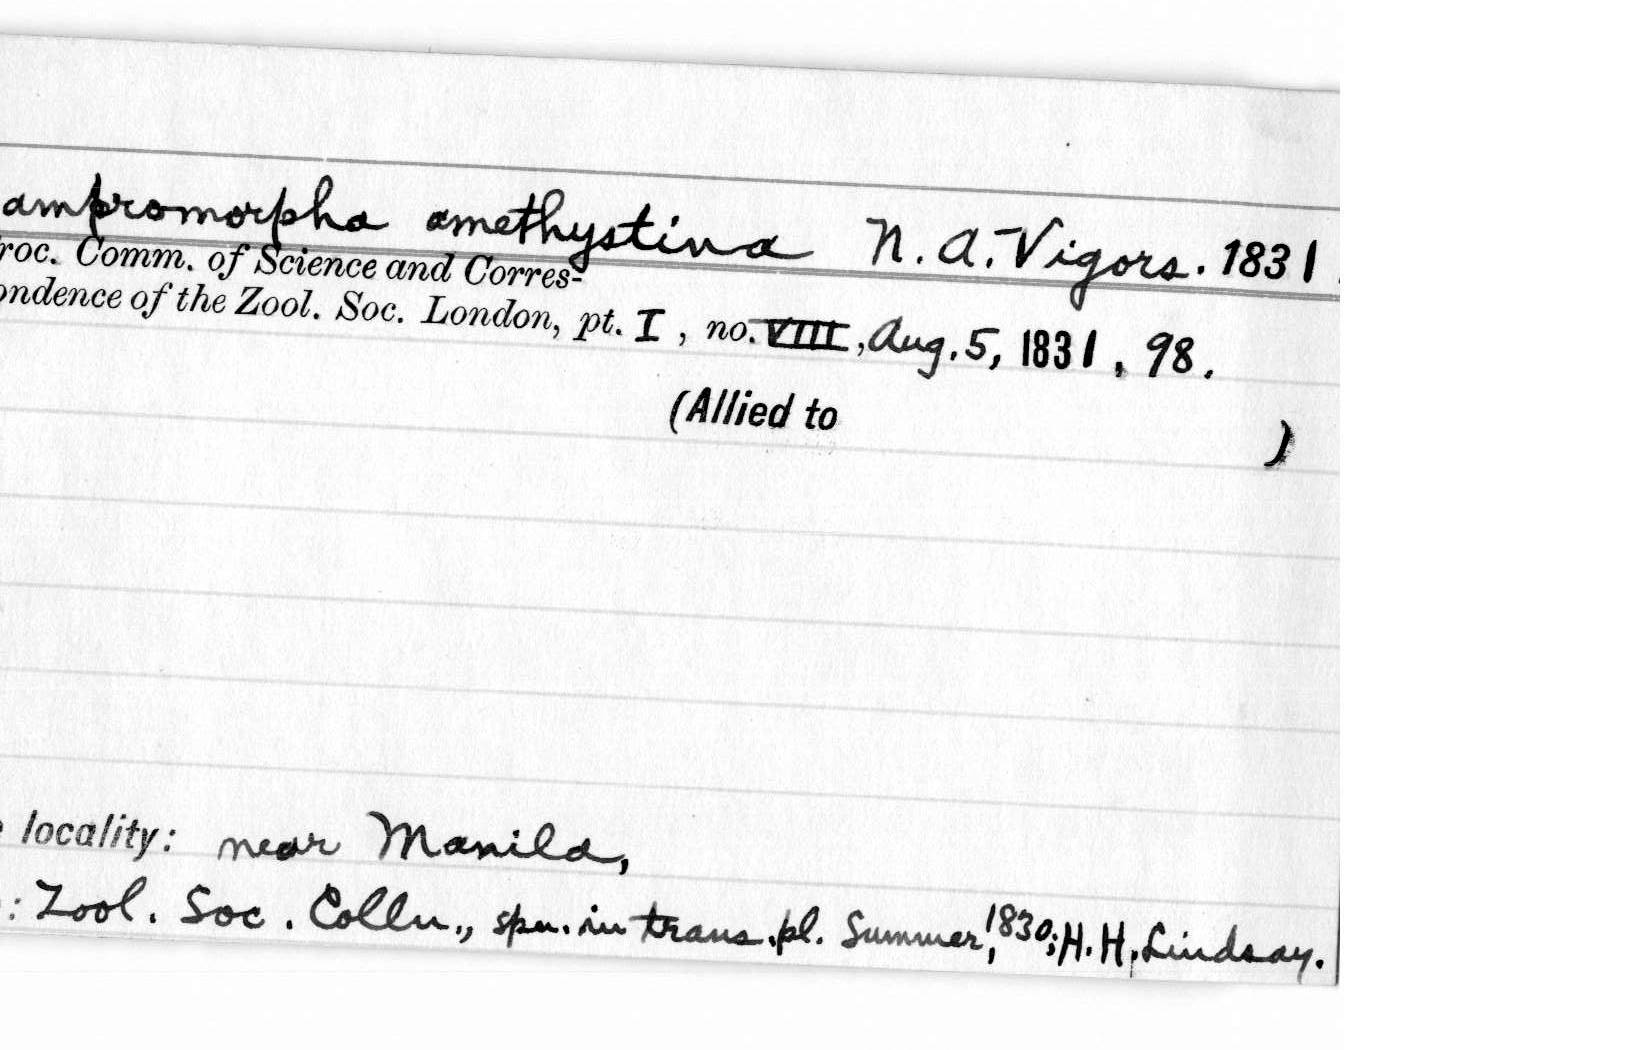 ampromorpha amethystina N. A. Vigors. 1831.
roc. Comm. of Science and Corres-
ondence of the Zool. Soc. London, pt. I, no. VIII, Aug. 5, 1831, 98.
(Allied to )
locality: near Manila,
: Zool. Soc. Colln., spn. in trans. pl. Summer, 1830; H. H. Lindsay.